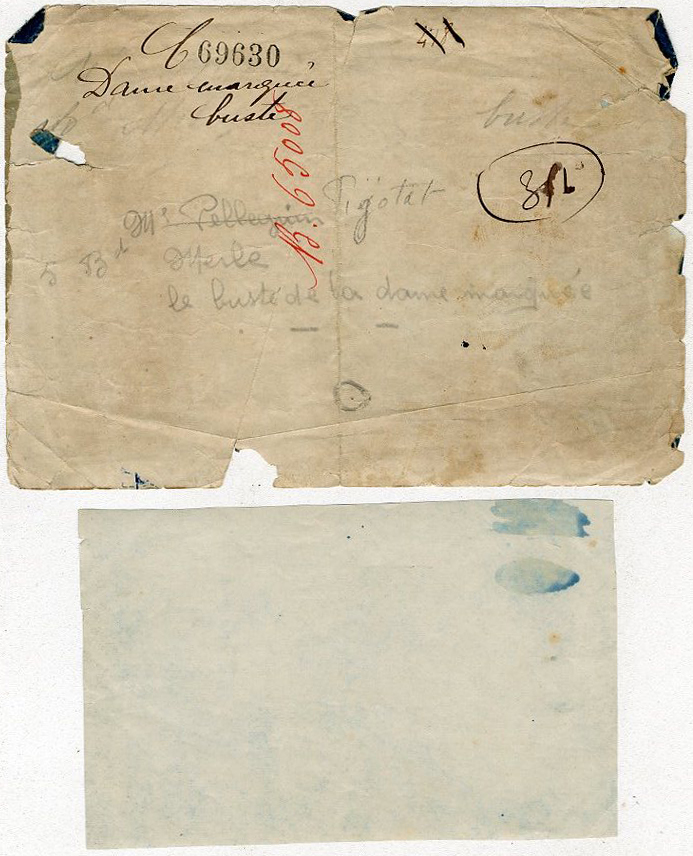 C 69630
448
Dame marquée
buste
buste
69008
Mr Pellegrin Pigotat
5 Bd Merle
le buste de la dame marquée